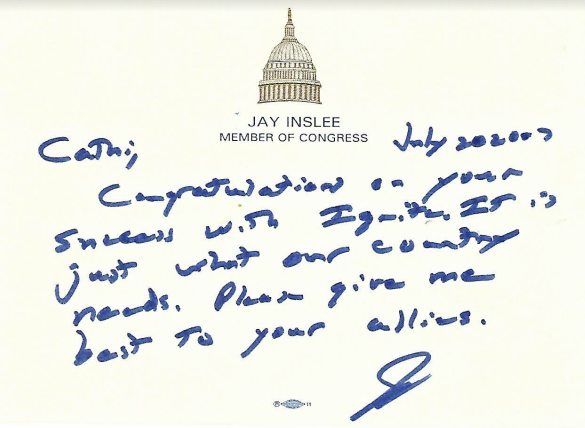 JAY INSLEE
MEMBER OF CONGRESS
July 20 2007
Cathi,
Congratulations on your
success with Ignite. It is
just what our country
needs. Please give me
best to your allies.